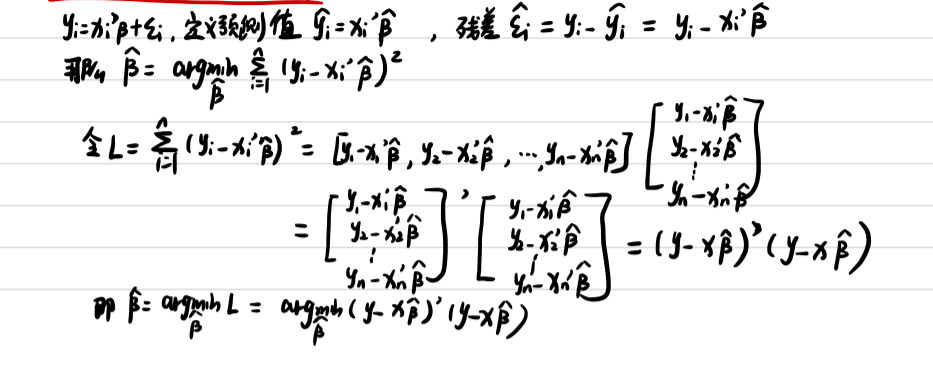 yᵢ=xᵢ'β+εᵢ, 定义预测值 ŷᵢ=xᵢ'β̂ , 残差 ε̂ᵢ = yᵢ-ŷᵢ = yᵢ-xᵢ'β̂
那么 β̂ = argmin_β̂ Σⁿᵢ₌₁ (yᵢ-xᵢ'β̂)²
令 L = Σⁿᵢ₌₁ (yᵢ-xᵢ'β̂)² = [y₁-x₁'β̂, y₂-x₂'β̂, ⋯, yₙ-xₙ'β̂] [y₁-x₁'β̂ y₂-x₂'β̂ ⋮ yₙ-xₙ'β̂]
= [y₁-x₁'β̂ y₂-x₂'β̂ ⋮ yₙ-xₙ'β̂]' [y₁-x₁'β̂ y₂-x₂'β̂ ⋮ yₙ-xₙ'β̂] = (y-xβ̂)'(y-xβ̂)
即 β̂ = argmin_β̂ L = argmin_β̂ (y-xβ̂)'(y-xβ̂)